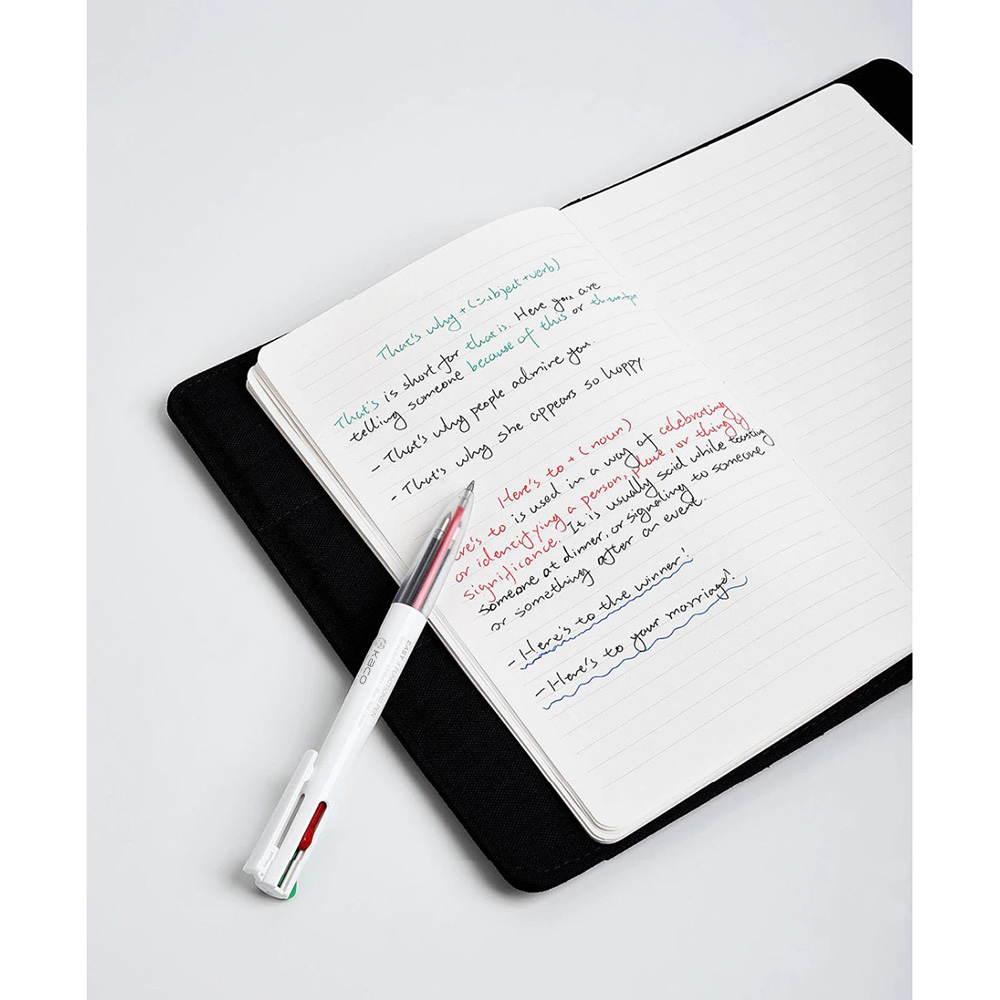 That's why + (subject + verb)
That's is short for that is. Here you are
telling someone because of this or therefore
- That's why people admire you.
- That's why she appears so happy
Here's to + (noun)
ere's to is used in a way of celebrating
or identifying a person, place, or thing of
significance. It is usually said while toasting
someone at dinner, or signaling to someone
or something after an event.
- Here's to the winner!
- Here's to your marriage!
KACO
EASY